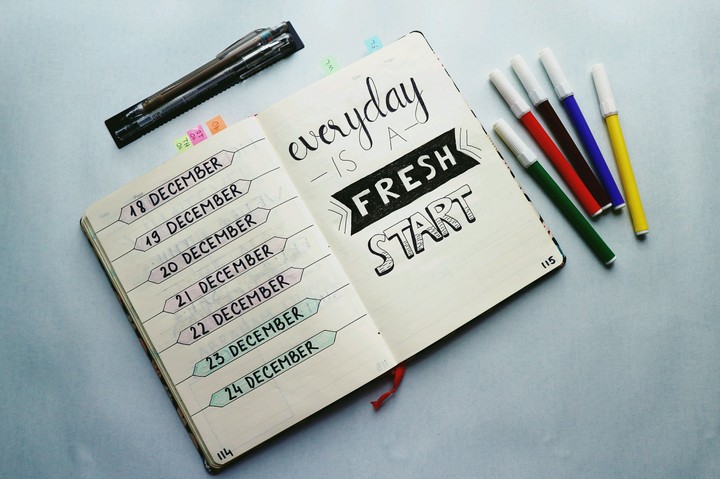 18 DECEMBER
19 DECEMBER
20 DECEMBER
21 DECEMBER
22 DECEMBER
23 DECEMBER
24 DECEMBER
114
everyday
-IS A-
FRESH
START
115